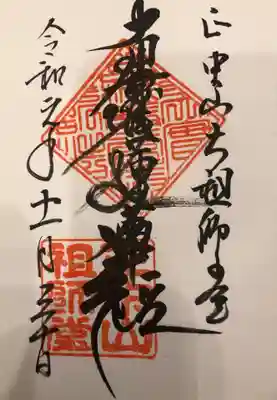 正中山大祖師堂
南無妙法蓮華経
令和元年十一月三十日
正中山
祖師堂